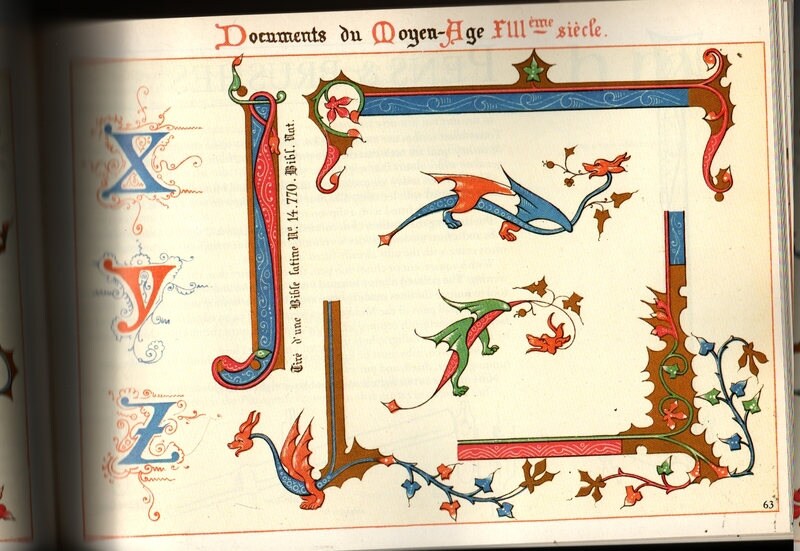 Documents du Moyen-Age XIIIème siècle.
X
Y
Z
Tiré d'une Bible latine No 14.770. Bibl. Nat.
63